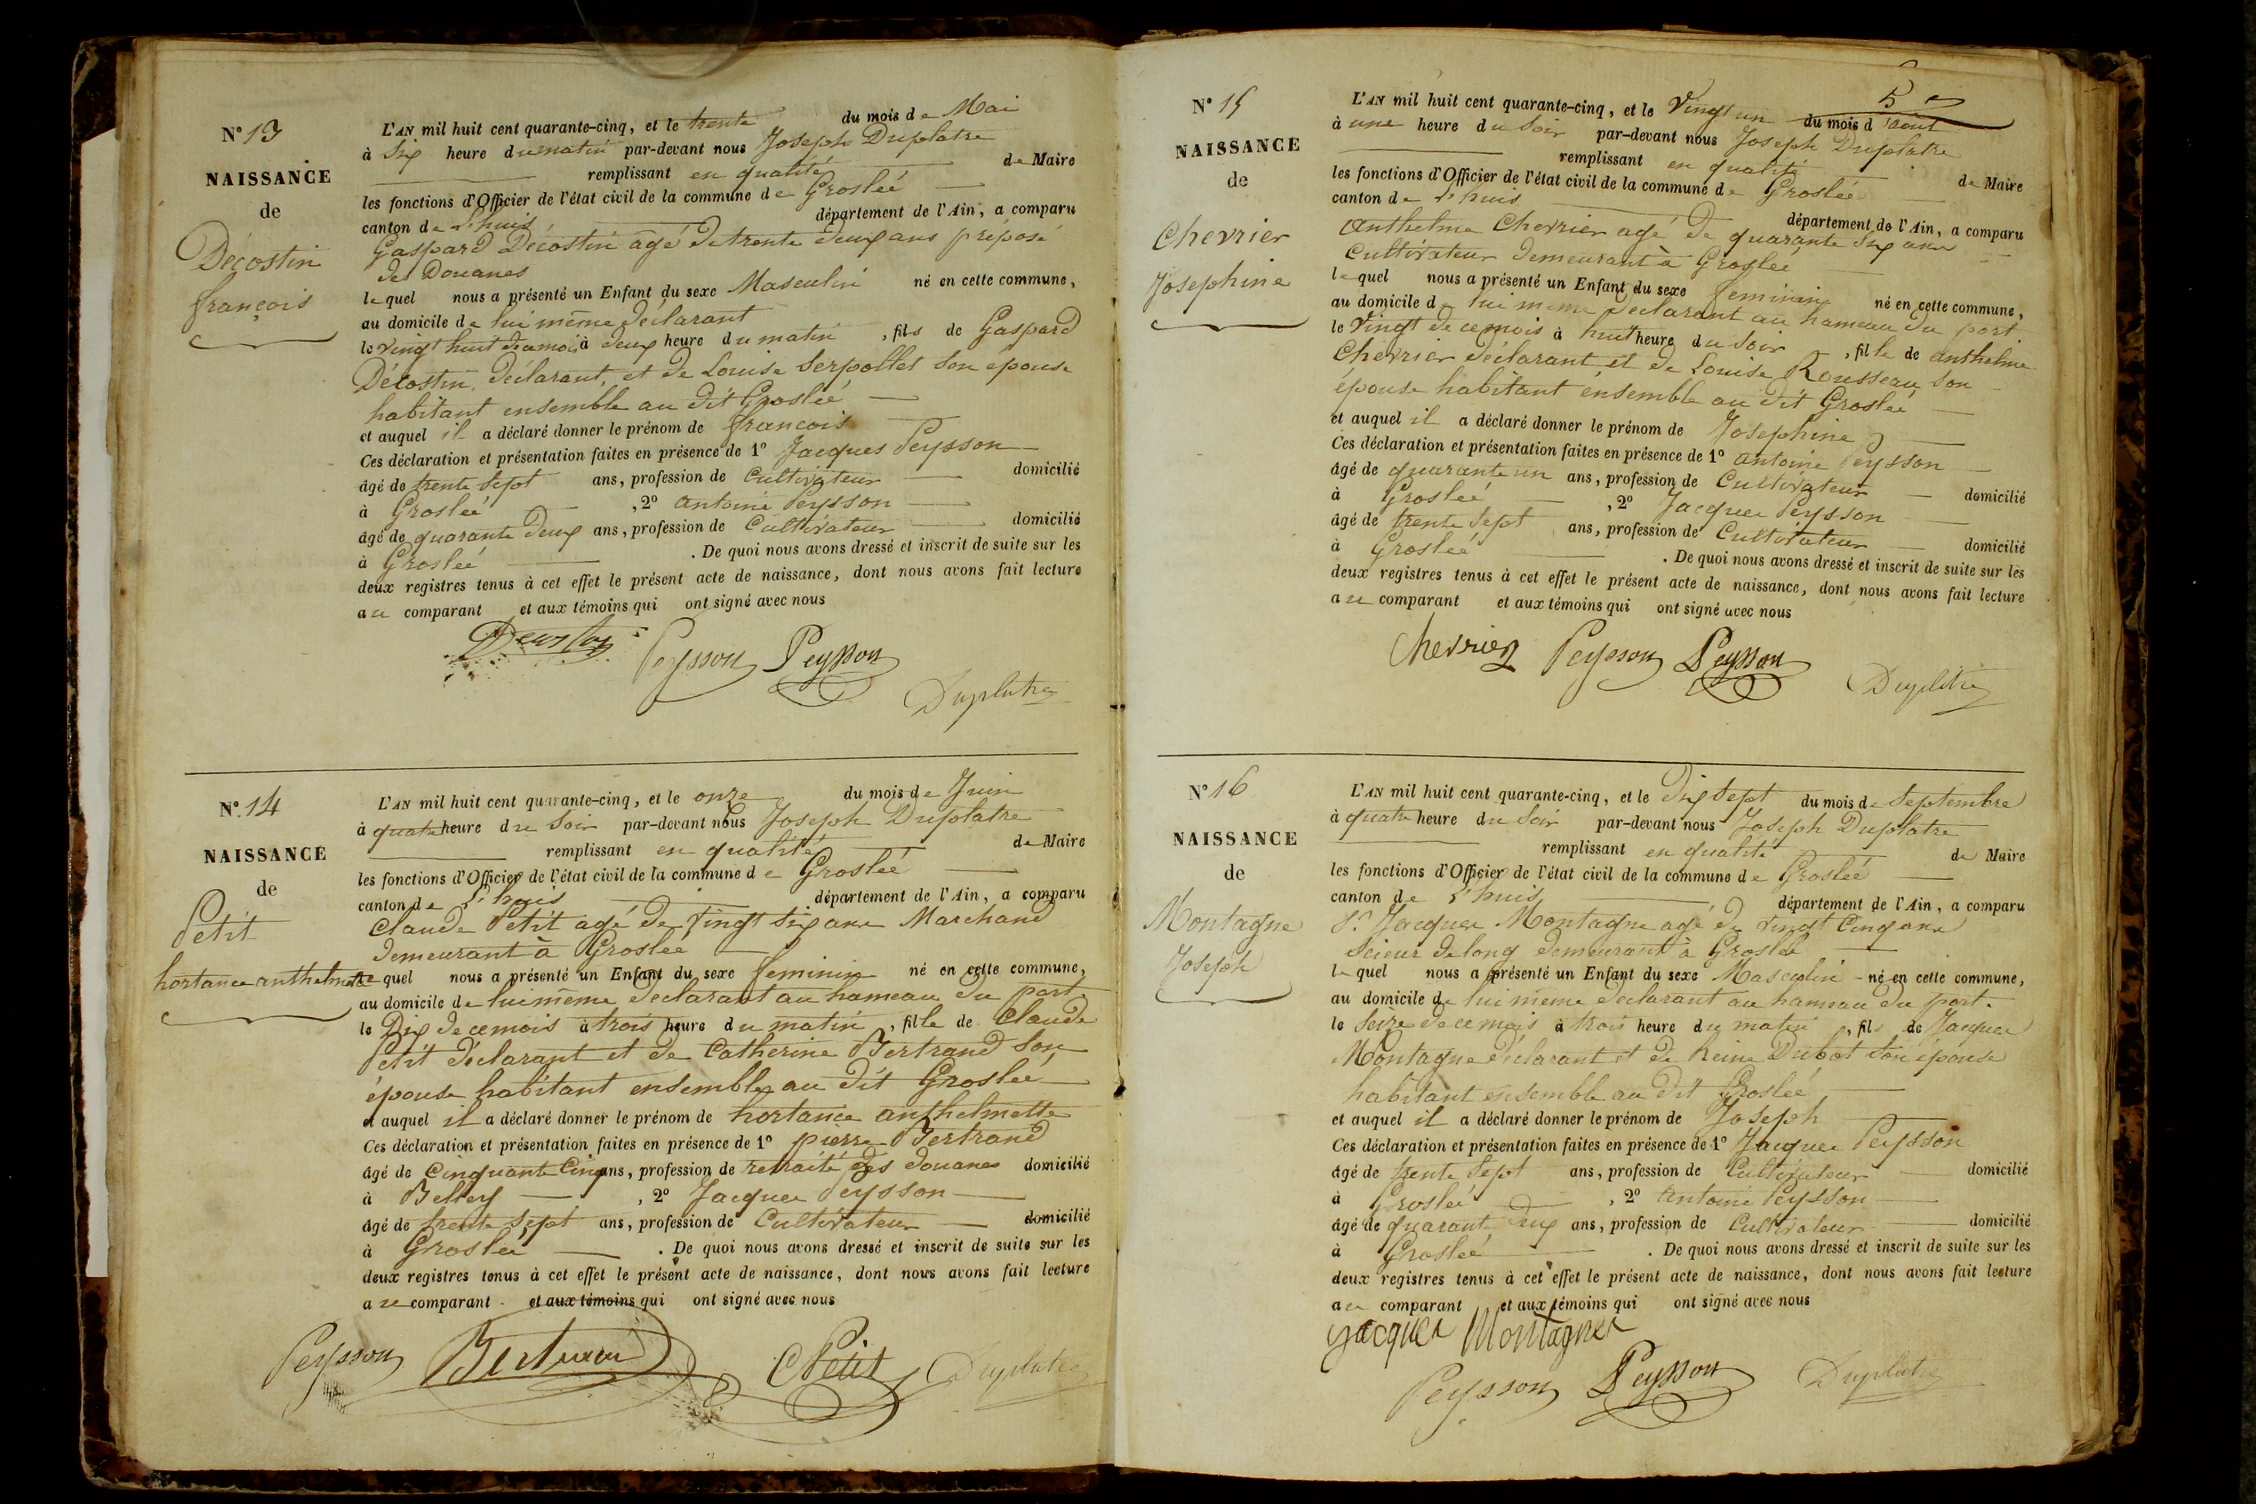 N° 13
NAISSANCE
de
Décostin
françois
L'AN mil huit cent quarante-cinq, et le trente du mois de Mai
à Six heure du matin par-devant nous Joseph Duplatre
remplissant en qualité de Maire
les fonctions d'Officier de l'état civil de la commune de Groslée
canton de L'huis département de l'Ain, a comparu
Gaspard Décostin agé de trente deux ans préposé
des Douanes
lequel nous a présenté un Enfant du sexe Masculin né en cette commune,
au domicile de lui même déclarant
le vingt huit du mois à deux heure du matin, fils de Gaspard
Décostin, déclarant, et de Louise Serpollet son épouse
habitant ensemble au dit Groslée
et auquel il a déclaré donner le prénom de françois
Ces déclaration et présentation faites en présence de 1° Jacques Peysson
âgé de trente sept ans, profession de Cultivateur domicilié
à Groslée, 2° antoine Peysson
âgé de quarante deux ans, profession de Cultivateur domicilié
à Groslée. De quoi nous avons dressé et inscrit de suite sur les
deux registres tenus à cet effet le présent acte de naissance, dont nous avons fait lecture
au comparant et aux témoins qui ont signé avec nous
Peysson Peysson
Duplatre
N° 14
NAISSANCE
de
Petit
hortance anthelmette
L'AN mil huit cent quarante-cinq, et le onze du mois de Juin
à quatre heure du Soir par-devant nous Joseph Duplatre
remplissant en qualité de Maire
les fonctions d'Officier de l'état civil de la commune de Groslée
canton de L'huis département de l'Ain, a comparu
Claude Petit agé de Vingt Six ans Marchand
demeurant à Groslée
lequel nous a présenté un Enfant du sexe feminin né en cette commune,
au domicile de lui même déclarant au hameau du port
le Dix de ce mois à trois heure du matin, fille de Claude
Petit déclarant et de Catherine Bertrand Son
épouse habitant ensemble au dit Groslée
et auquel il a déclaré donner le prénom de hortance anthelmette
Ces déclaration et présentation faites en présence de 1° pierre Bertrand
âgé de Cinquante Cinq ans, profession de retraité des douanes domicilié
à Belley, 2° Jacques Peysson
âgé de trente sept ans, profession de Cultivateur domicilié
à Groslée. De quoi nous avons dressé et inscrit de suite sur les
deux registres tenus à cet effet le présent acte de naissance, dont nous avons fait lecture
au comparant et aux témoins qui ont signé avec nous
Peysson Bertrand C Petit Duplatre
5
N° 15
NAISSANCE
de
Chevrier
Josephine
L'AN mil huit cent quarante-cinq, et le Vingt un du mois d'aout
à une heure du Soir par-devant nous Joseph Duplatre
remplissant en qualité de Maire
les fonctions d'Officier de l'état civil de la commune de Groslée
canton de L'huis département de l'Ain, a comparu
Anthelme Chevrier agé de quarante Six ans
Cultivateur demeurant à Groslée
lequel nous a présenté un Enfant du sexe feminin né en cette commune,
au domicile de lui meme déclarant au hameau du port
le Vingt de ce mois à huit heure du Soir, fille de anthelme
Chevrier déclarant et de Louise Rousseau Son
épouse habitant ensemble au dit Groslée
et auquel il a déclaré donner le prénom de Josephine
Ces déclaration et présentation faites en présence de 1° antoine Peysson
âgé de quarante un ans, profession de Cultivateur domicilié
à Groslée, 2° Jacques Peysson
âgé de trente sept ans, profession de Cultivateur domicilié
à Groslée. De quoi nous avons dressé et inscrit de suite sur les
deux registres tenus à cet effet le présent acte de naissance, dont nous avons fait lecture
au comparant et aux témoins qui ont signé avec nous
Chevrier Peysson Peysson
Duplatre
N° 16
NAISSANCE
de
Montagne
Joseph
L'AN mil huit cent quarante-cinq, et le dix Sept du mois de Septembre
à quatre heure du Soir par-devant nous Joseph Duplatre
remplissant en qualité de Maire
les fonctions d'Officier de l'état civil de la commune de Groslée
canton de L'huis département de l'Ain, a comparu
Sr Jacques Montagne agé de vingt Cinq ans
Scieur de long demeurant à Groslée
lequel nous a présenté un Enfant du sexe Masculin né en cette commune,
au domicile de lui même déclarant au hameau du port.
le Seize de ce mois à trois heure du matin, fils de Jacques
Montagne déclarant et de Reine Dubot Son épouse
habitant ensemble au dit Groslée
et auquel il a déclaré donner le prénom de Joseph
Ces déclaration et présentation faites en présence de 1° Jacques Peysson
âgé de trente sept ans, profession de Cultivateur domicilié
à Groslée, 2° Antoine Peysson
âgé de quarante deux ans, profession de Cultivateur domicilié
à Groslée. De quoi nous avons dressé et inscrit de suite sur les
deux registres tenus à cet effet le présent acte de naissance, dont nous avons fait lecture
au comparant et aux témoins qui ont signé avec nous
Jacques Montagner
Peysson Peysson Duplatre